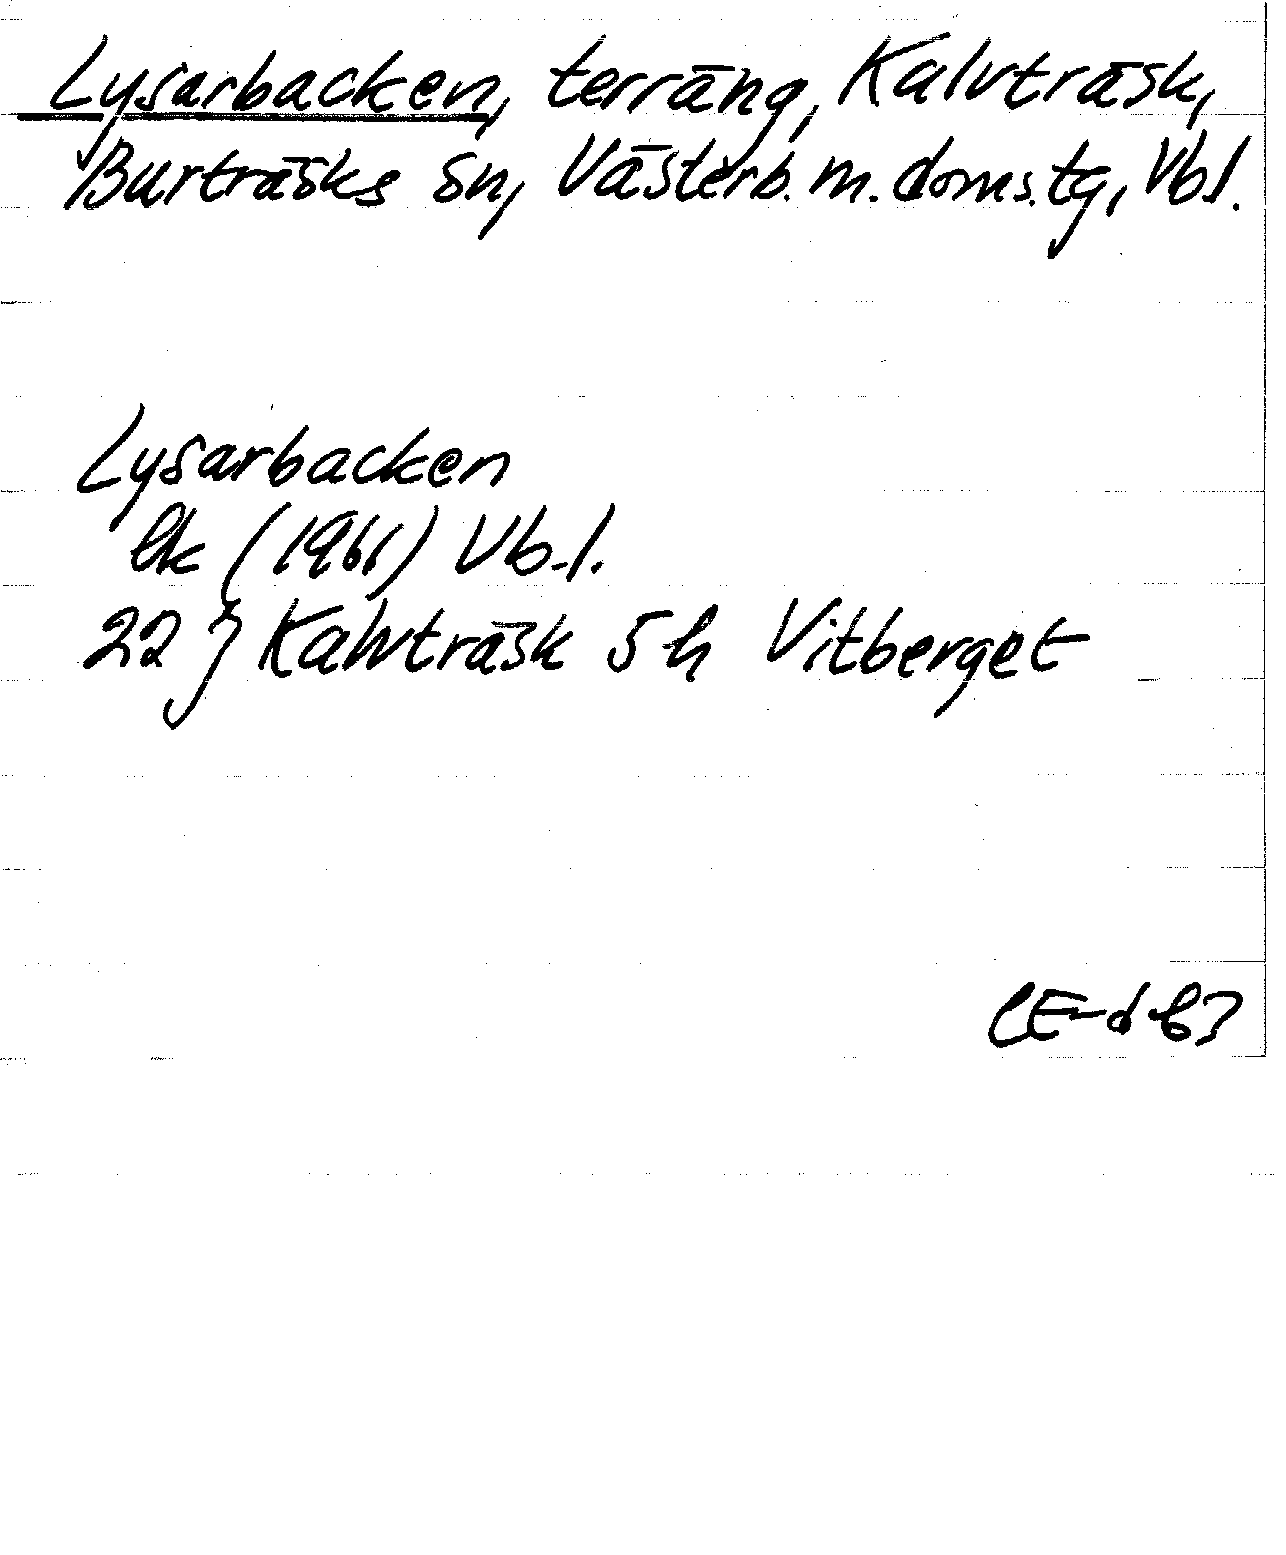 Lysarbacken, terräng, Kalvträsk,
Burträsks sn, Västerb. m. doms.tg, Vb l.
Lysarbacken
Ek (1961) Vb.l.
22 J Kalvträsk 5 h Vitberget